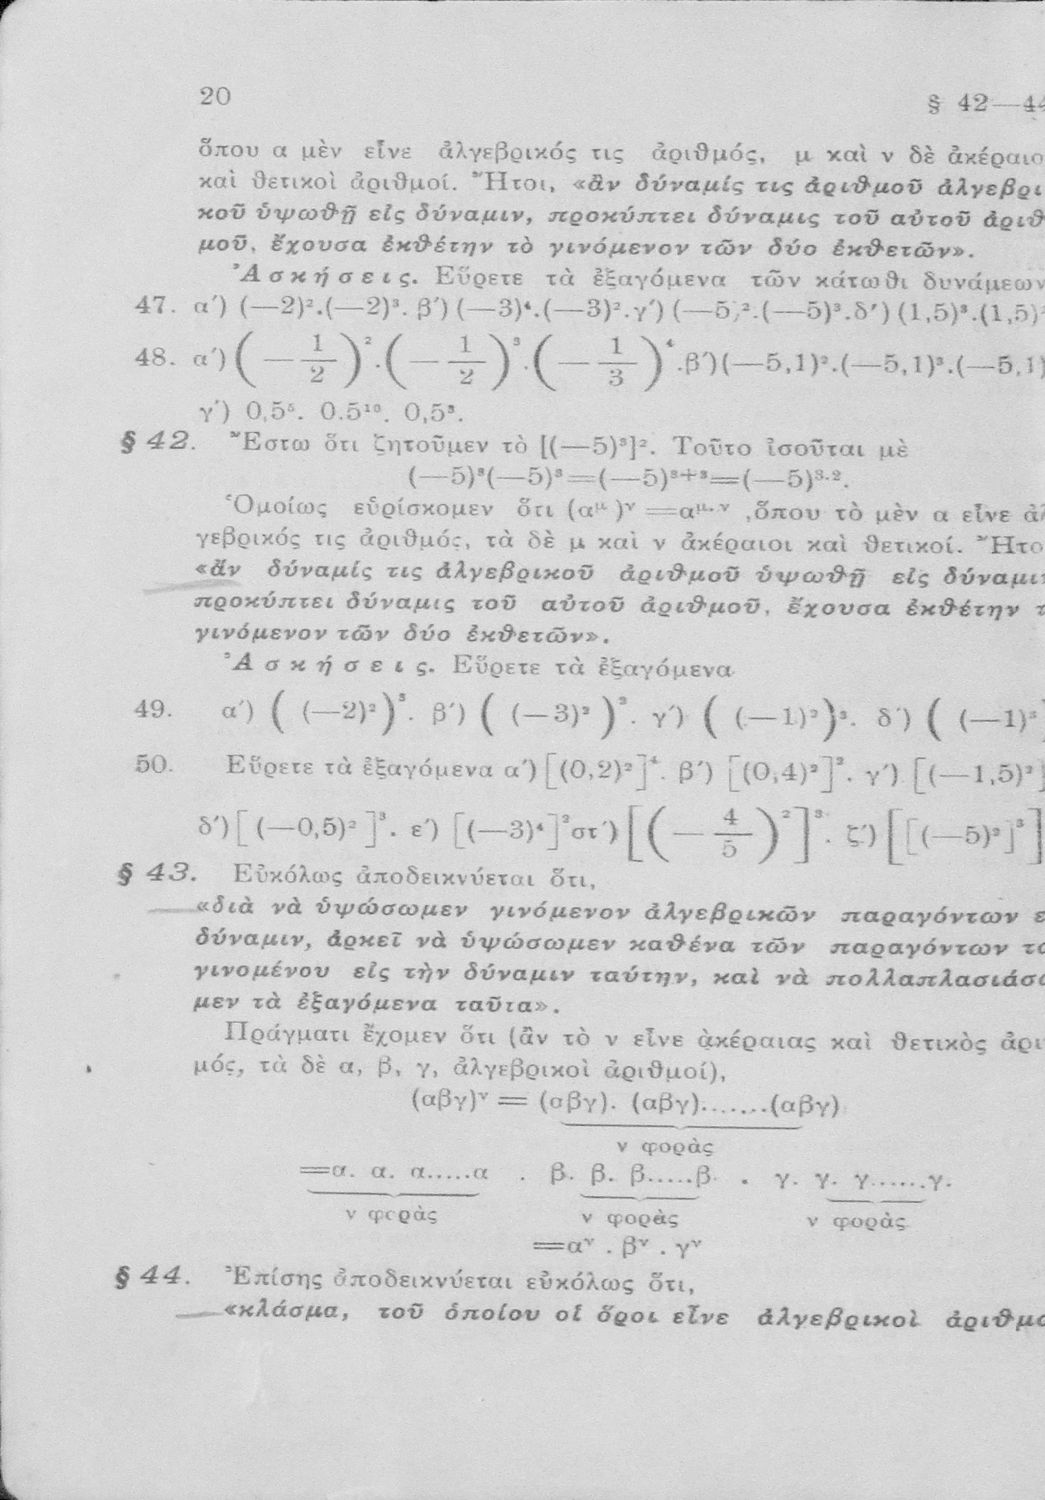 20
§ 42—44
ὅπου α μὲν εἶνε ἀλγεβρικός τις ἀριθμός, μ καὶ ν δὲ ἀκέραιο
καὶ θετικοὶ ἀριθμοί. Ἤτοι, «ἂν δύναμίς τις ἀριθμοῦ ἀλγεβρι
κοῦ ὑψωθῇ εἰς δύναμιν, προκύπτει δύναμις τοῦ αὐτοῦ ἀριθ
μοῦ, ἔχουσα ἐκθέτην τὸ γινόμενον τῶν δύο ἐκθετῶν».
Ἀσκήσεις. Εὕρετε τὰ ἐξαγόμενα τῶν κάτωθι δυνάμεων
47. α′) (—2)².(—2)³. β′) (—3)⁴.(—3)².γ′) (—5)².(—5)³.δ′) (1,5)³.(1,5)²
48. α′) (—1/2)².(—1/2)³.(—1/3)⁴.β′)(—5,1)².(—5,1)³.(—5,1)
γ′) 0,5⁵. 0.5¹⁰. 0,5³.
§ 42. Ἔστω ὅτι ζητοῦμεν τὸ [(—5)³]². Τοῦτο ἰσοῦται μὲ
(—5)³(—5)³=(—5)³⁺³=(—5)³·².
Ὁμοίως εὑρίσκομεν ὅτι (αᵘ)ᵛ=αᵘ·ᵛ ,ὅπου τὸ μὲν α εἶνε ἀλ
γεβρικός τις ἀριθμός, τὰ δὲ μ καὶ ν ἀκέραιοι καὶ θετικοί. Ἤτο
«ἄν δύναμίς τις ἀλγεβρικοῦ ἀριθμοῦ ὑψωθῇ εἰς δύναμιν
προκύπτει δύναμις τοῦ αὐτοῦ ἀριθμοῦ, ἔχουσα ἐκθέτην τ
γινόμενον τῶν δύο ἐκθετῶν».
Ἀσκήσεις. Εὕρετε τὰ ἐξαγόμενα
49. α′) ( (—2)²)³. β′) ( (—3)² )². γ′) ( (—1)²)³. δ′) ( (—1)³
50. Εὕρετε τὰ ἐξαγόμενα α′) [(0,2)²]⁴. β′) [(0,4)²]². γ′) [(—1,5)²]
δ′)[ (—0,5)² ]³. ε′) [(—3)⁴]²στ′) [(—4/5)²]³. ζ′) [[(—5)²]³]
§ 43. Εὐκόλως ἀποδεικνύεται ὅτι,
«διὰ νὰ ὑψώσωμεν γινόμενον ἀλγεβρικῶν παραγόντων ε
δύναμιν, ἀρκεῖ νὰ ὑψώσωμεν καθένα τῶν παραγόντων το
γινομένου εἰς τὴν δύναμιν ταύτην, καὶ νὰ πολλαπλασιάσω
μεν τὰ ἐξαγόμενα ταῦτα».
Πράγματι ἔχομεν ὅτι (ἂν τὸ ν εἶνε ἀκέραιας καὶ θετικὸς ἀρι
μός, τὰ δὲ α, β, γ, ἀλγεβρικοὶ ἀριθμοί),
(αβγ)ᵛ = (αβγ). (αβγ).......(αβγ)
ν φορὰς
=α. α. α.....α . β. β. β.....β . γ. γ. γ......γ.
ν φορὰς ν φορὰς ν φορὰς
=αᵛ . βᵛ . γᵛ
§ 44. Ἐπίσης ἀποδεικνύεται εὐκόλως ὅτι,
«κλάσμα, τοῦ ὁποίου οἱ ὅροι εἶνε ἀλγεβρικοὶ ἀριθμο